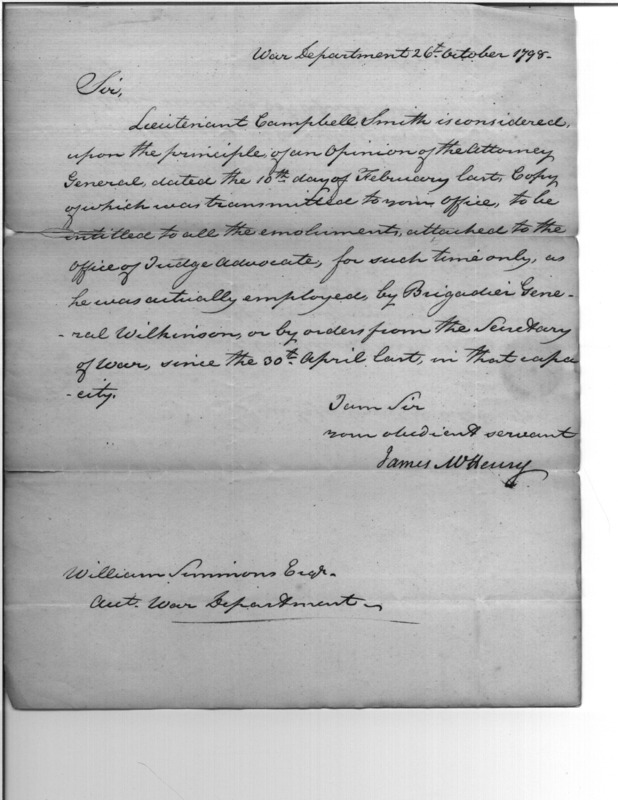 War Department 26th. October 1798-
Sir,
Lieutenant Campbell Smith is considered,
upon the principle, of an Opinion of the Attorney
General, dated the 10th. day of February last, Copy
of which was transmitted to your Office, to be
entitled to all the emoluments, attached to the
Office of Judge Advocate, for such time only, as
he was actually employed, by Brigadier Gene-
-ral Wilkinson, or by orders from the Secretary
of War, since the 30th. April last, in that capa
-city.
I am Sir
your obedient servant
James McHenry
William Simmons Esqr.
Acct. War Department